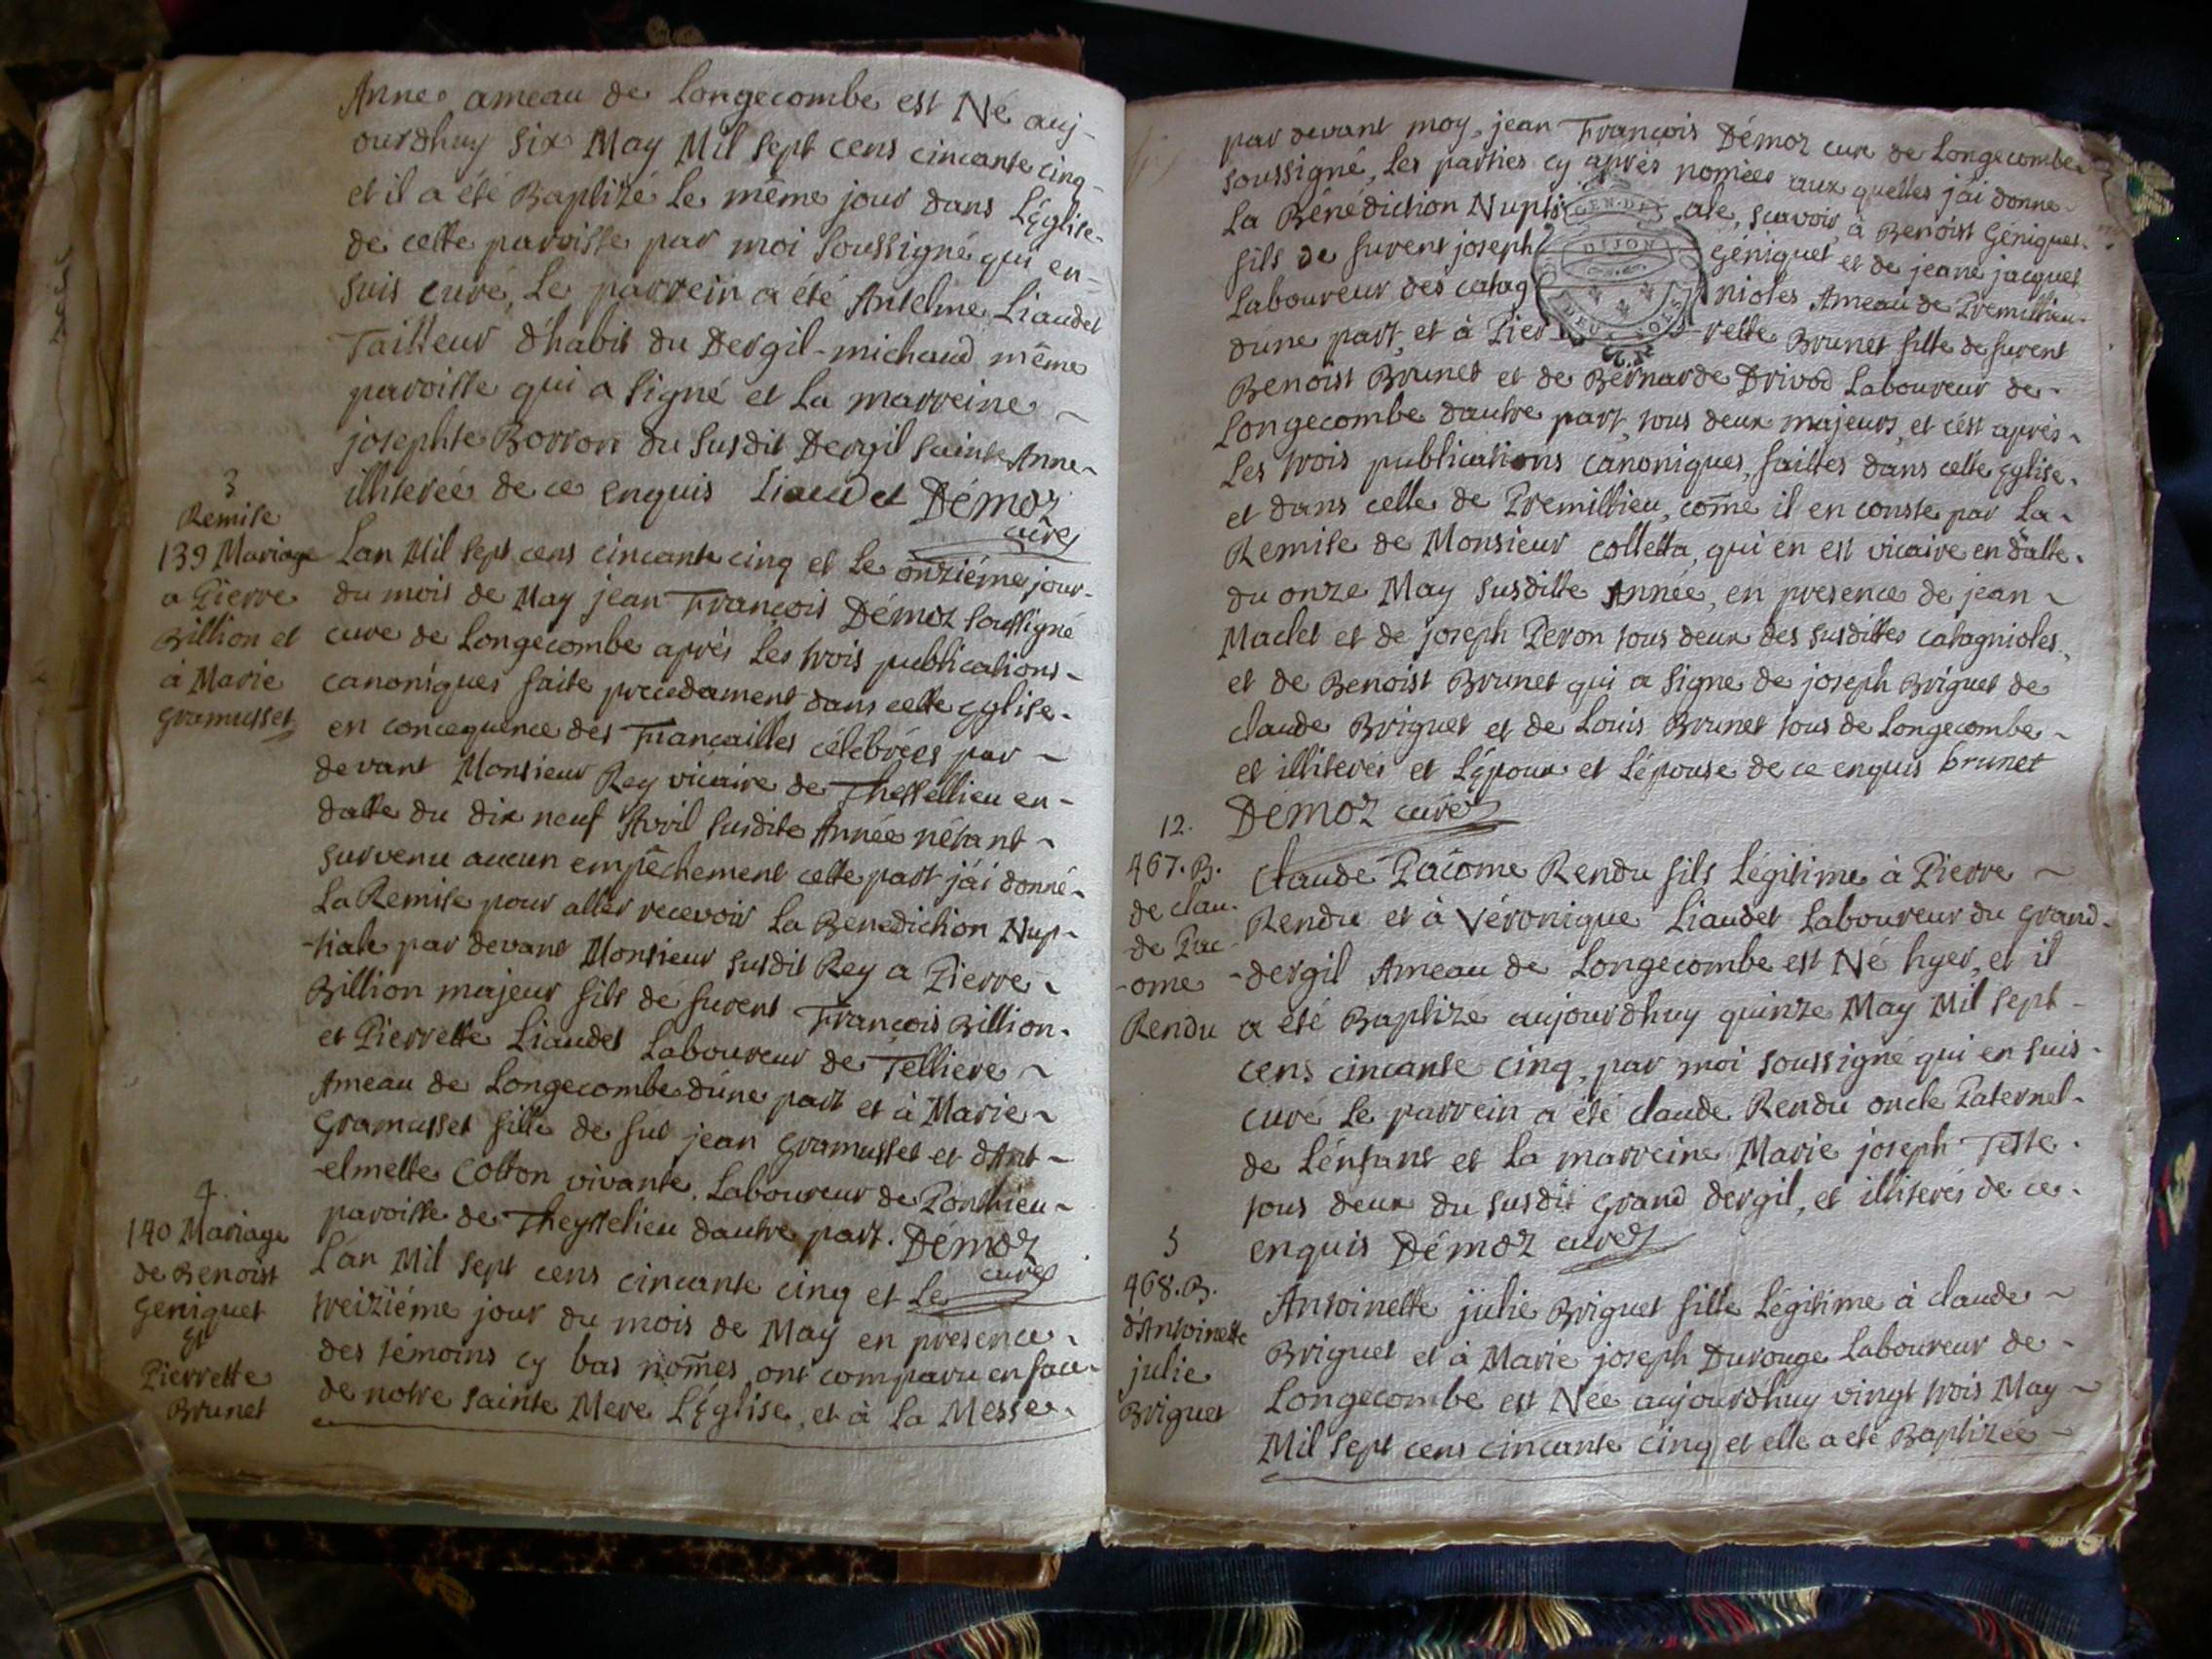 Anne ameau de Longecombe est Né auj-
ourdhuy six May Mil sept cens cincante cinq
et il a été Baptizé le même jour dans L'Eglise
de cette paroisse par moi soussigné qui en
suis curé, Le parrein a été Antelme Liaudet
Tailleur d'habit du Dergil-michaud même
paroisse qui a signé et La marreine
josephte Borron du susdit Dergil sainte Anne
illiterée de ce enquis Liaudet Démoz
curé
3
Remise
139 Mariage
a Pierre
Billion et
à Marie
gramusset
Lan Mil sept cens cincante cinq et Le onziéme jour
du mois de May jean François Démoz soussigné
cure de Longecombe aprés Les trois publications
canoniques faite precedament dans cette Eglise
en concequence des Fiançailles célebrées par
devant Monsieur Rey vicaire de Thessellieu en
datte du dix neuf Avril susdite Année n'étant
survenu aucun empêchement cette part j'ái donné
La Remise pour aller recevoir La Benediction Nup-
-tiale par devant Monsieur susdit Rey a Pierre
Billion majeur fils de furent François Billion
et Pierrette Liaudet Laboureur de Telliere
Ameau de Longecombe d'úne part et à Marie
gramusset fille de fut jean gramusset et d'Ant-
-elmette Cotton vivante, Laboureur de Ponthieu
paroisse de Theysselieu dautre part. Démoz
curé
4.
140 Mariage
de Benoist
Geniquet
et
Pierrette
Brunet
L'an Mil sept cens cincante cinq et Le
treiziéme jour du mois de May en presence
des témoins cy bas nom̃es ont comparu en face
de notre sainte Mere L'Eglise, et à La Messe
par devant moy jean François Démoz cure de Longecombe
soussigné, Les parties cy aprés nomées aux quelles j'ái donne
La Bénediction Nupti ale, scavoir à Benoist Géniquet
fils de furent joseph Géniquet et de jeane jacquet
Laboureur des catag nioles Ameau de Premillieu
dúne part, et à Pier rette Brunet fille de furent
Benoist Brunet et de Bernarde Drivod Laboureur de
Longecombe dautre part, tous deux majeurs, et c'ést aprés
Les trois publications canoniques, faittes dans cette Eglise
et dans celle de Premillieu, com̃e il en conste par La
Remise de Monsieur Colletta, qui en est vicaire en datte
du onze May susditte Année, en presence de jean
Maclet et de joseph Peron tous deux des susdittes catagnioles
et de Benoist Brunet qui a signe de joseph Briguet de
claude Briguet et de Louis Brunet tous de Longecombe
et illiterés et L'Epoux et L'épouse de ce enquis brunet
Démoz curé
GEN. DE
DIJON
DEUX SOLS
12.
467. B.
de clau-
de Pac
-ome
Rendu
Claude Pacome Rendu fils Légitime à Pierre
Rendu et à Véronique Liaudet Laboureur du grand
-dergil Ameau de Longecombe est Né hyer, et il
a été Baptizé aujourdhuy quinze May Mil sept
cens cincante cinq, par moi soussigné qui en suis
curé Le parrein a été claude Rendu oncle Paternel
de L'énfant et La marreine Marie joseph Teste
tous deux du susdit grand dergil, et illiterés de ce
enquis Démoz curé
5
468. B.
d'Antoinette
julie
Briguet
Antoinette julie Briguet fille Légitime à claude
Briguet et à Marie joseph Durouge Laboureur de
Longecombe est Née aujourdhuy vingt trois May
Mil sept cens cincante cinq et elle a été Baptizée